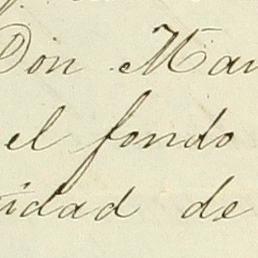 Don Mar
el fondo
idad de